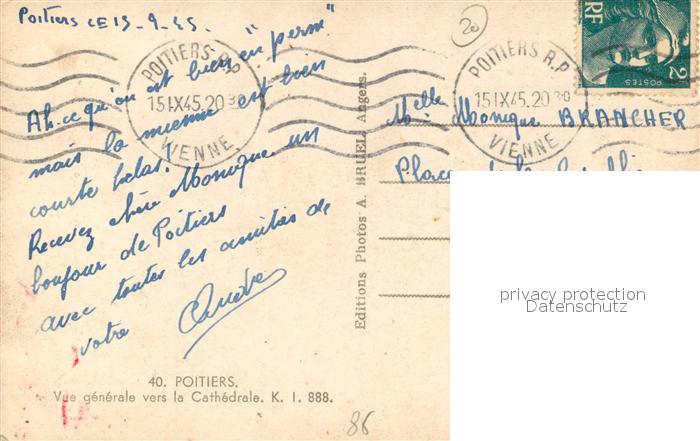 Poitiers CE 15-9-45.
20
POITIERS R.P
15 IX 45. 20 30
VIENNE
POITIERS R.P
15 IX 45. 20 30
VIENNE
RF
2
POSTES
Ah. ce qu'on est bien "en perm"
mais la mienne est bien
courte helas.
Recevez chère Monique un
bonjour de Poitiers
avec toutes les amitiés de
votre
Melle Monique BRANCHER
Place
Editions Photos A. BRUEL, Angers.
40. POITIERS.
Vue générale vers la Cathédrale. K. I. 888.
86
privacy protection
Datenschutz